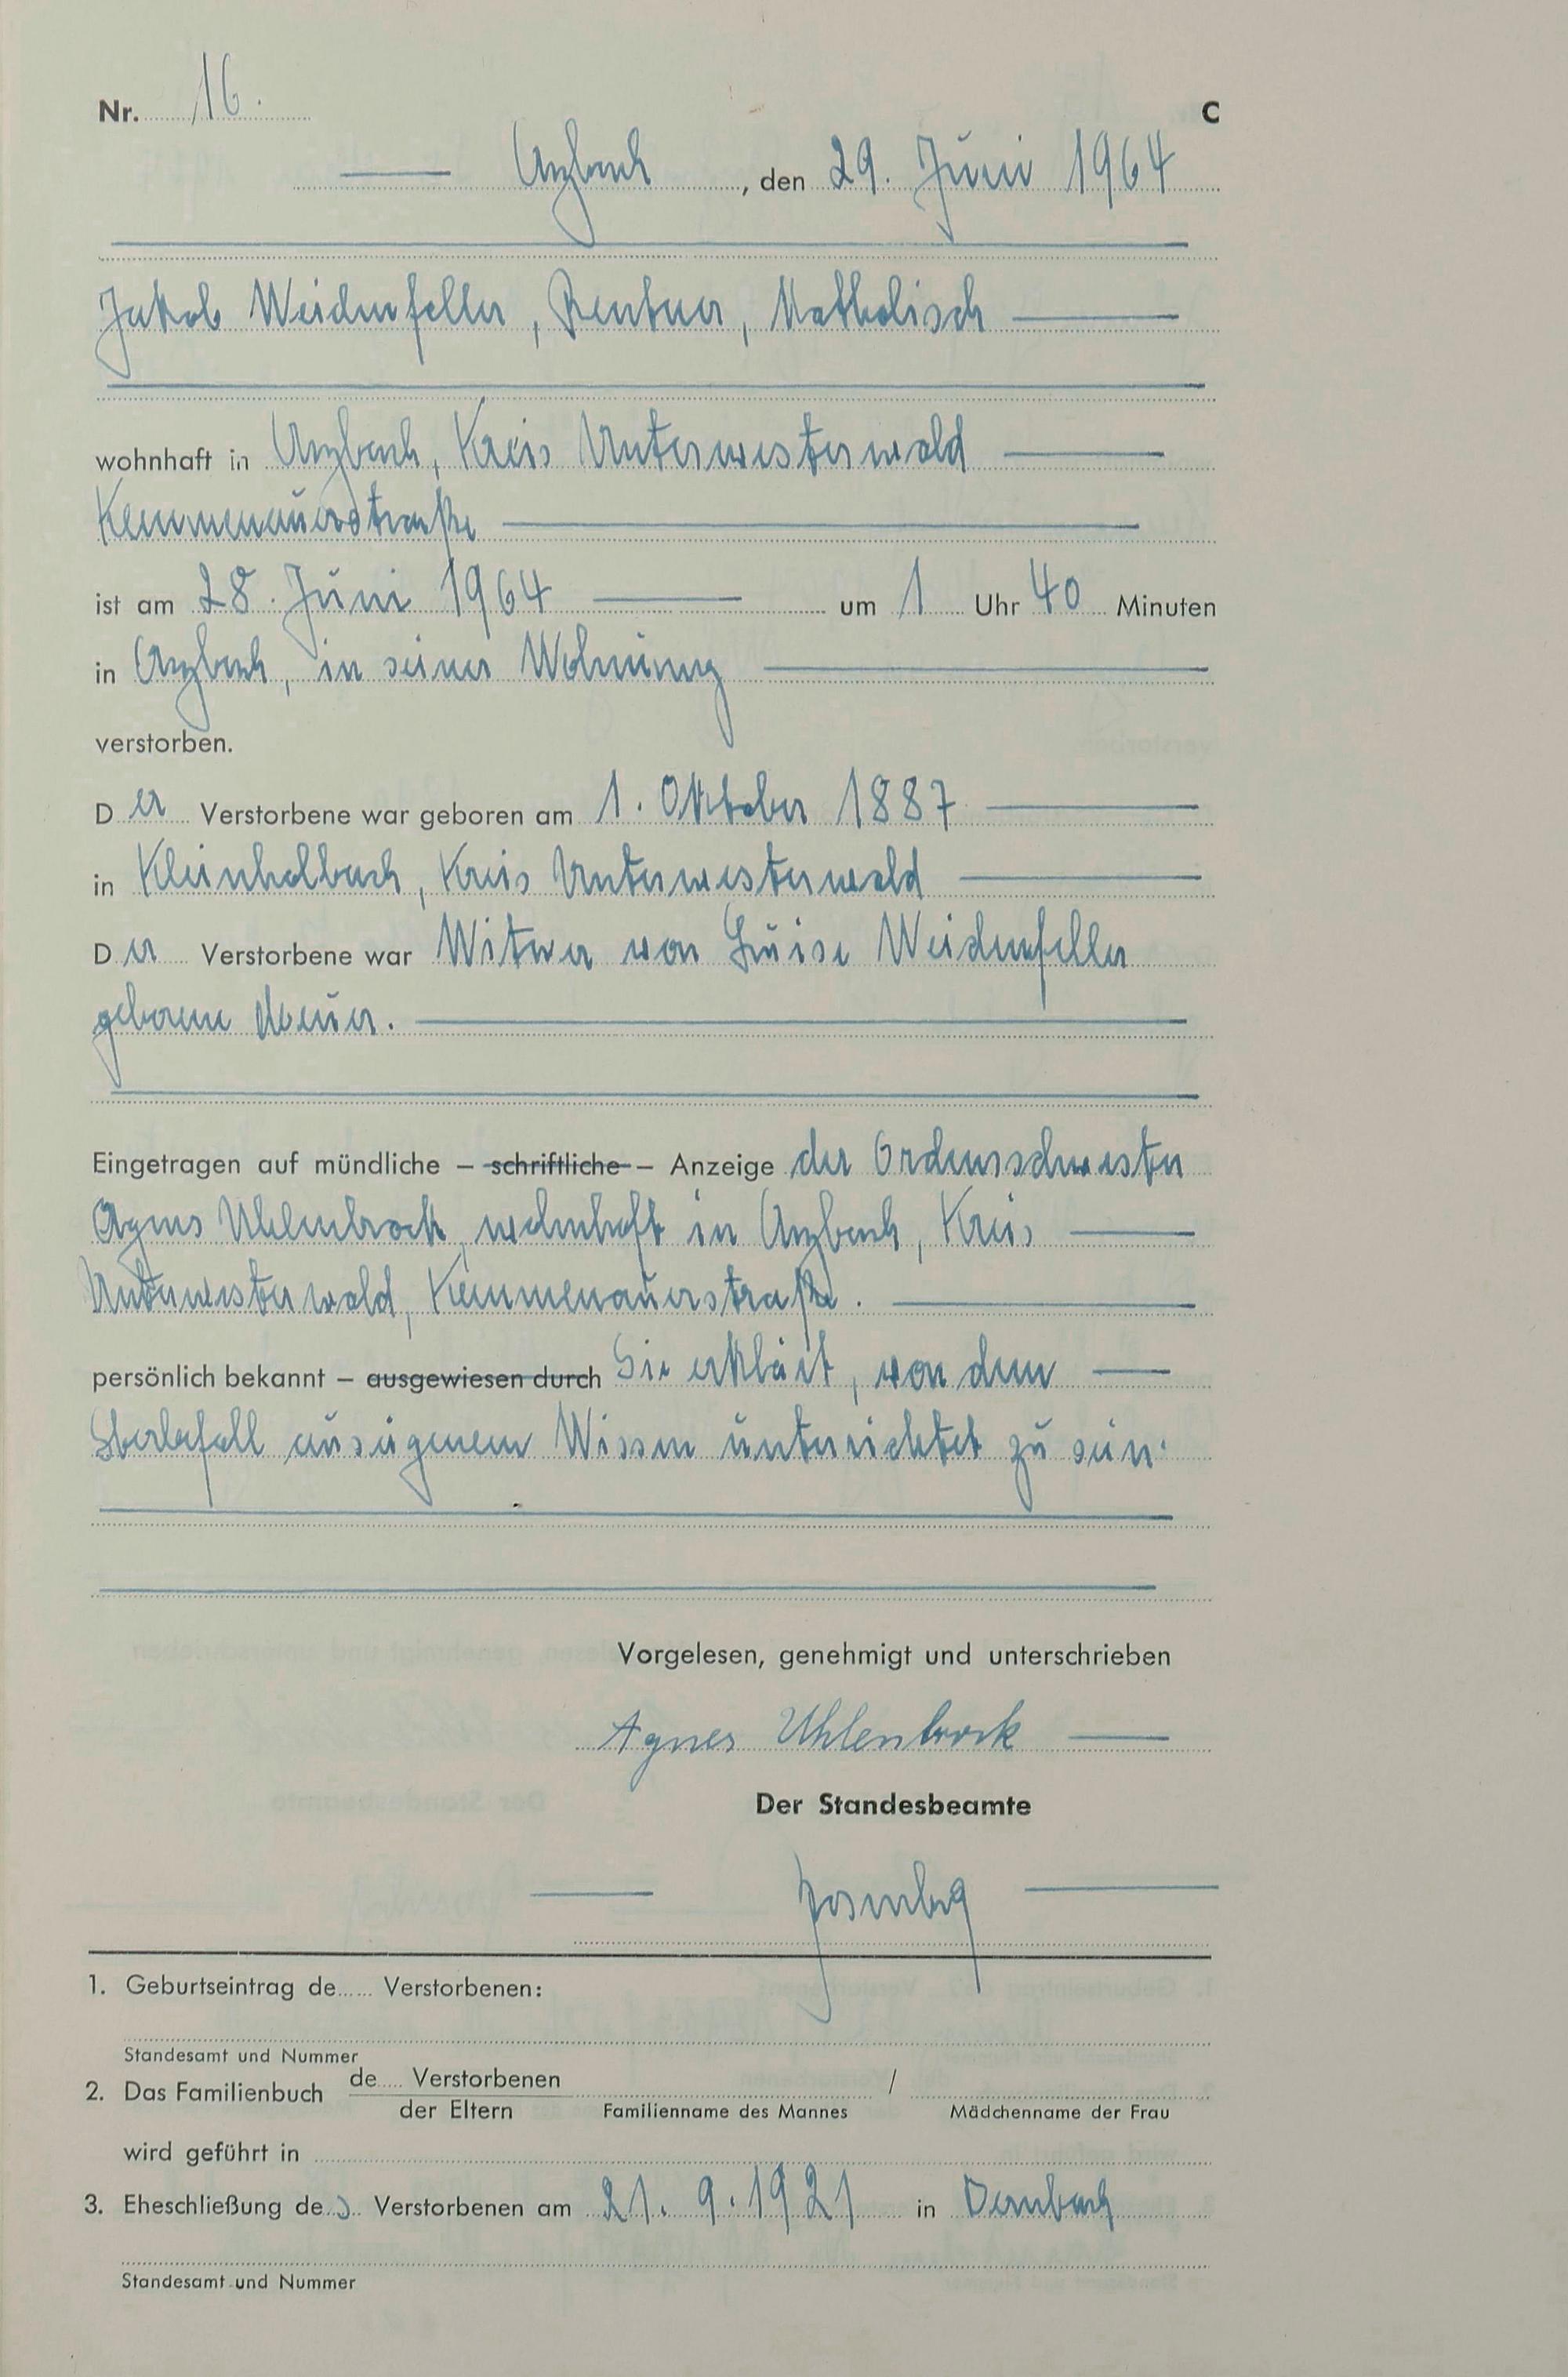 Nr. 16. C
Arzbach, den 29. Juni 1964
Jakob Weidenfeller, Rentner, Katholisch
wohnhaft in Arzbach, Kreis Unterwesterwald
Kemmenauerstraße
ist am 28. Juni 1964 um 1 Uhr 40 Minuten
in Arzbach, in seiner Wohnung
verstorben.
Der Verstorbene war geboren am 1. Oktober 1887
in Kleinholbach, Kreis Unterwesterwald
Der Verstorbene war Witwer von Luise Weidenfeller
geborene Meuer.
Eingetragen auf mündliche – schriftliche – Anzeige der Ordensschwester
Agnes Uhlenbrock, wohnhaft in Arzbach, Kreis
Unterwesterwald, Kemmenauerstraße.
persönlich bekannt – ausgewiesen durch Sie erklärt, von dem
Sterbefall aus eigenem Wissen unterrichtet zu sein.
Vorgelesen, genehmigt und unterschrieben
Agnes Uhlenbrock
Der Standesbeamte
1. Geburtseintrag de...... Verstorbenen:
Standesamt und Nummer
2. Das Familienbuch de..... Verstorbenen /
der Eltern Familienname des Mannes Mädchenname der Frau
wird geführt in
3. Eheschließung des Verstorbenen am 21. 9. 1921 in Dernbach
Standesamt und Nummer